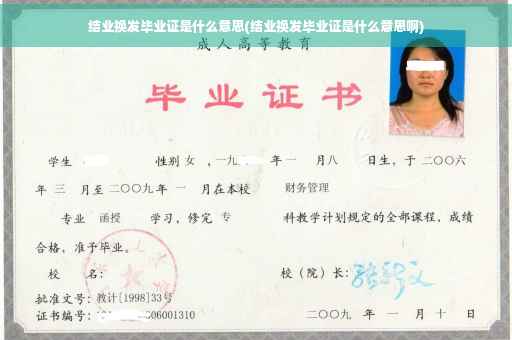 结业换发毕业证是什么意思(结业换发毕业证是什么意思啊)
成人高等教育
毕业证书
学生 性别 女 ，一九 年一 月八 日生，于二〇〇六
年 三 月至二〇〇九年 一 月在本校 财务管理
专业 函授 学习，修完 专 科教学计划规定的全部课程，成绩
合格，准予毕业。
校 名： 校（院）长：
批准文号：教计[1998]33号
证书编号： 006001310 二〇〇九 年 一 月 十 日